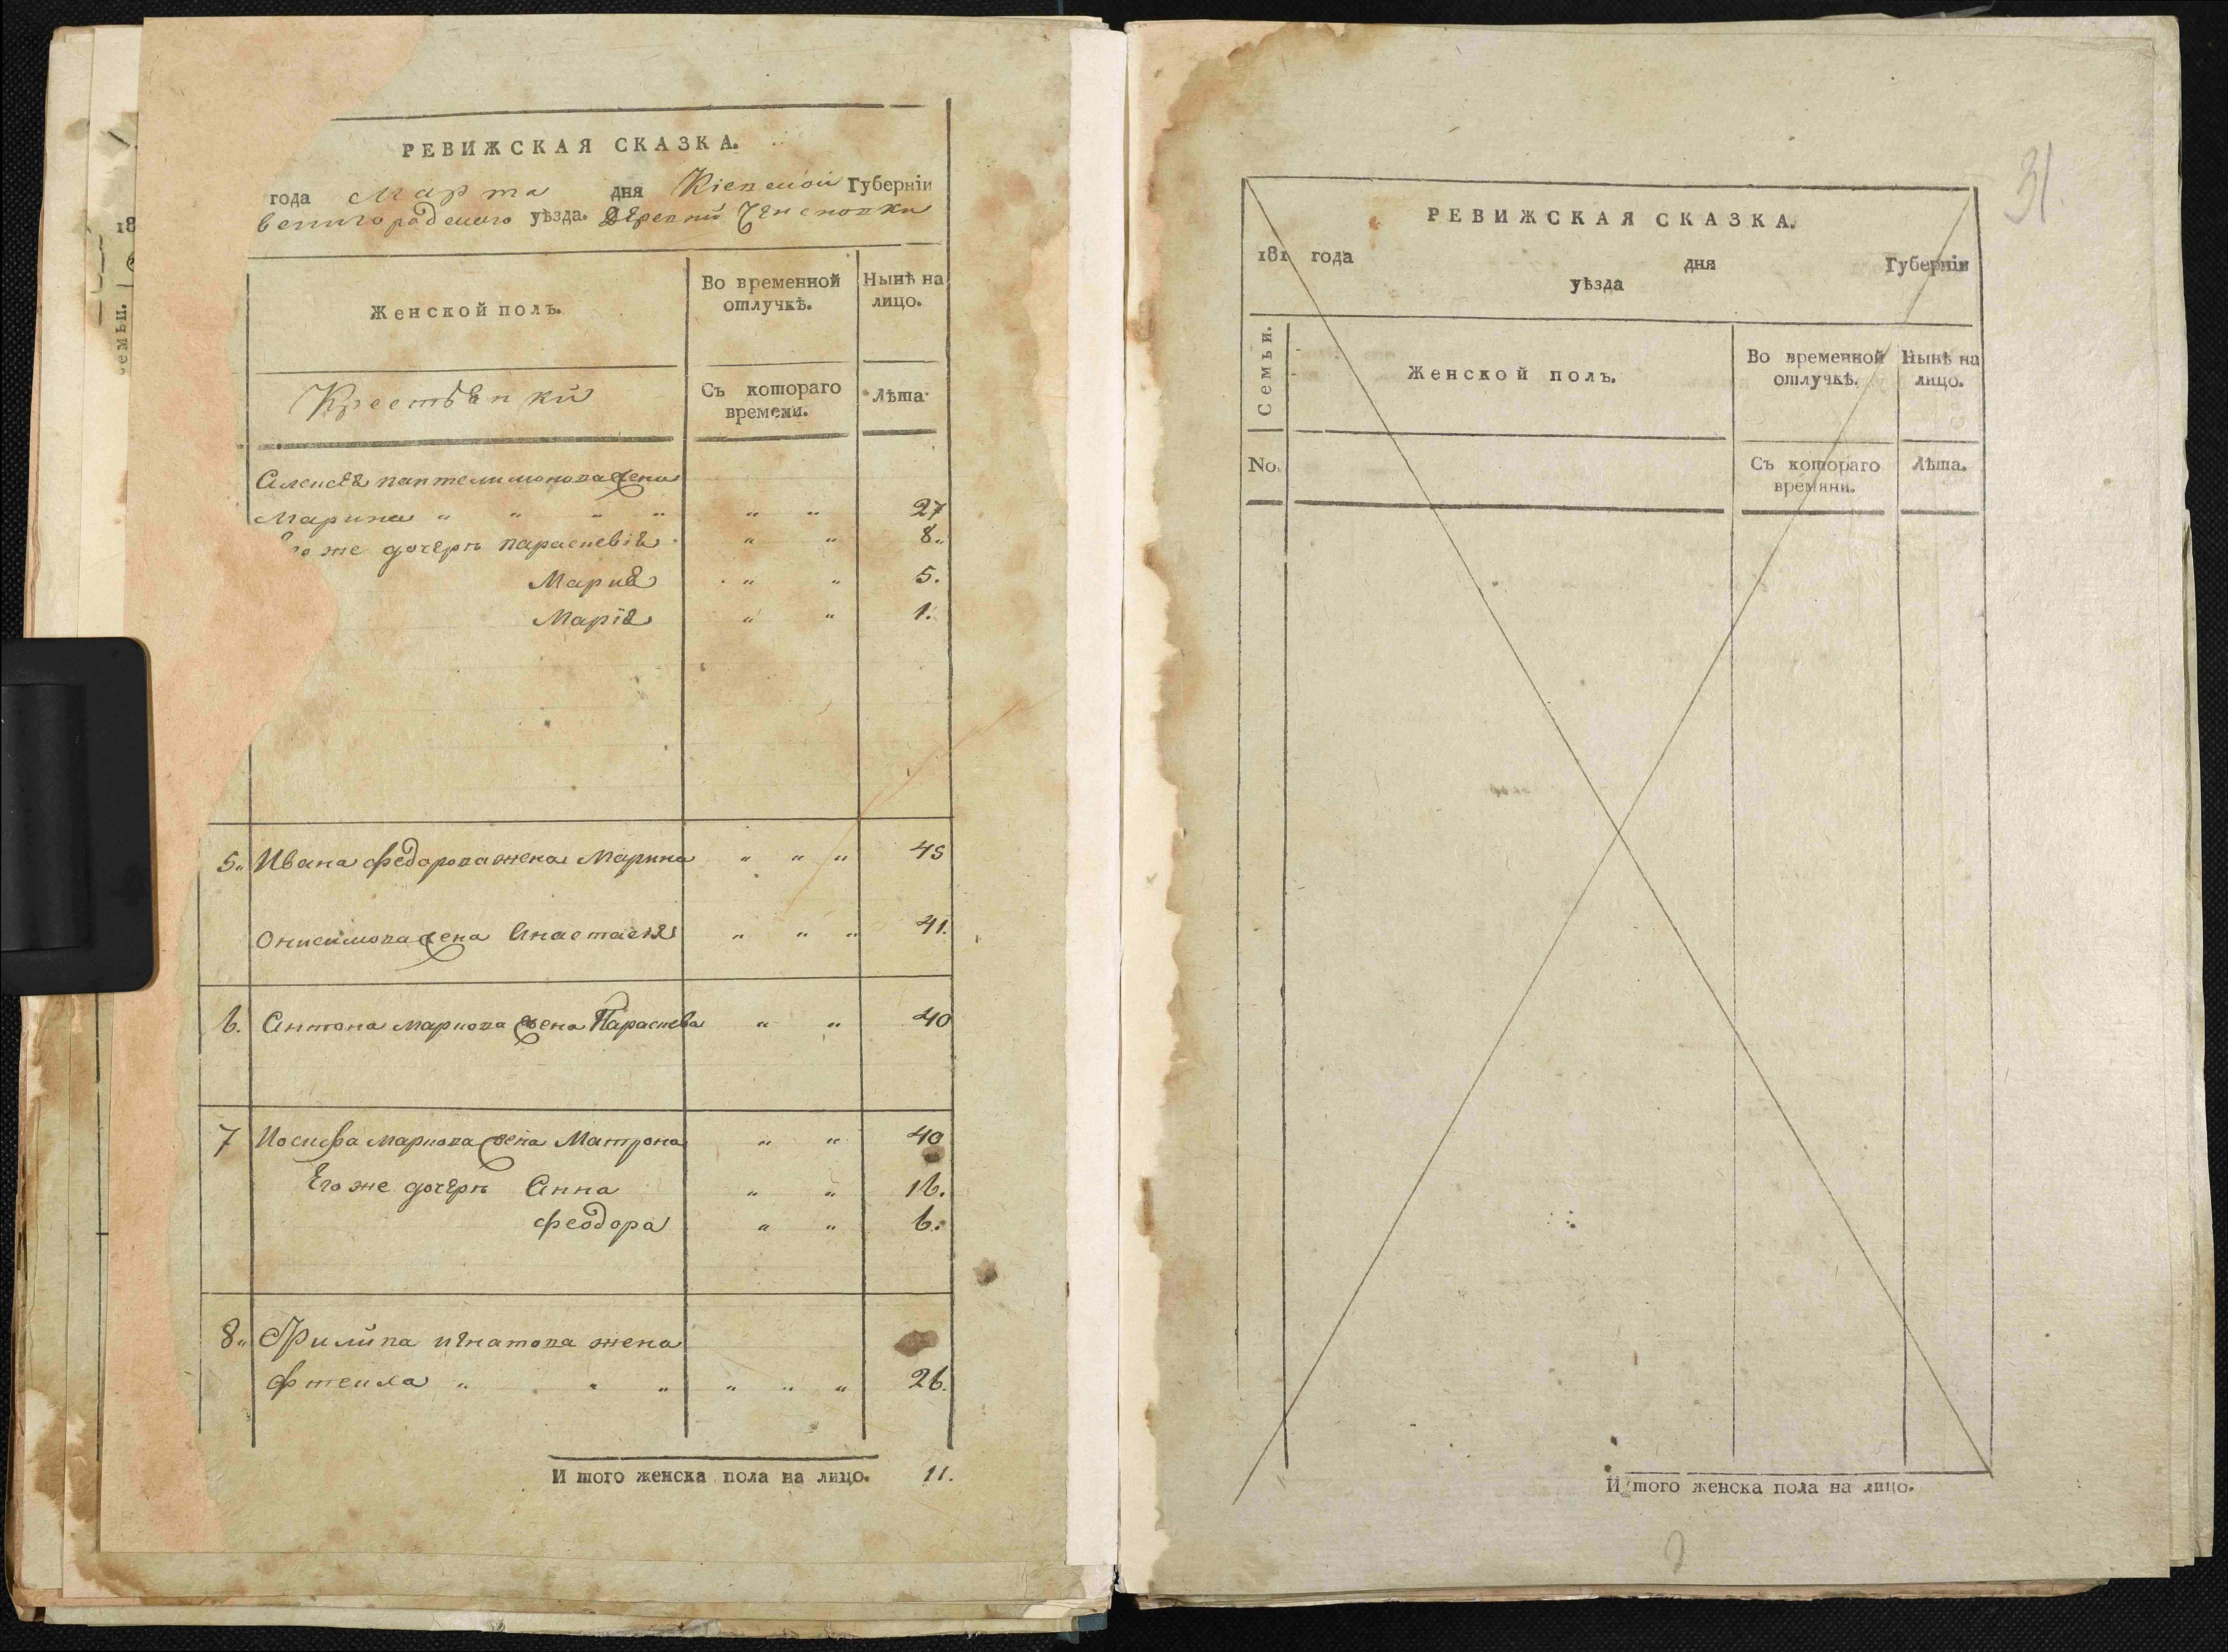 РЕВИЖСКАЯ СКАЗКА.
года Марта дня Кіевской Губерніи
венигородского уѣзда. Деревни
18
емьи.
Женской полъ.
Во временной отлучкѣ.
Нынѣ на лицо.
Крестьянки
Съ котораго времени.
Лѣта
Алексея пантелимонова жена
Марина " " " " " " 27
го же дочерь параскевия " " 8.
Мария " " 5.
Марія " " 1.
5. Ивана федорова жена Марина " " " 45
Онисимова жена Анастасия " " " 41.
6. Антона маркова жена Параскева " " 40
7 Иосифа маркова жена Матрона " " 40
Его же дочерь Анна " " 16.
феодора " " 6.
8. Филипа игнатова жена
фтекла " " " " " " 26.
И того женска пола на лицо. 11.
31.
РЕВИЖСКАЯ СКАЗКА.
181 года дня Губерніи
уѣзда
Семьи.
Женской полъ.
Во временной отлучкѣ.
Нынѣ на лицо.
No.
Съ котораго времяни.
Лѣта.
И того женска пола на лицо.